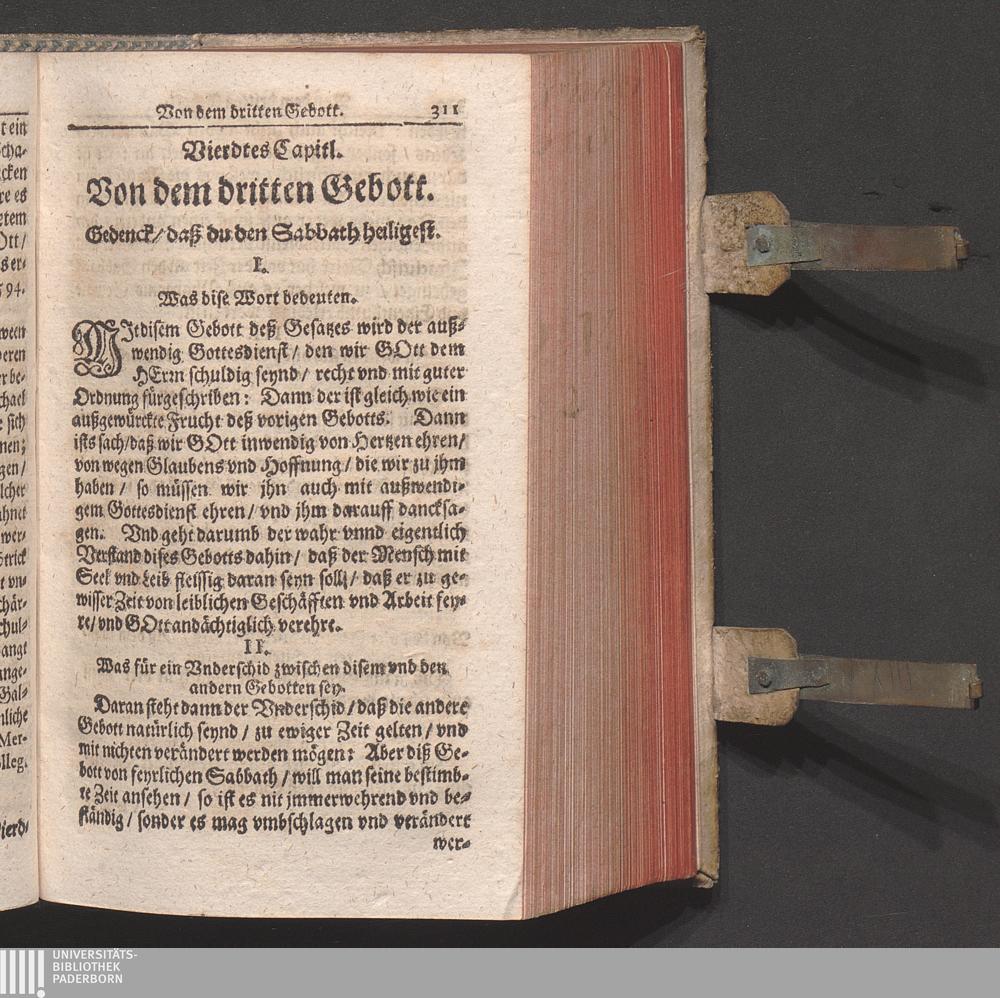 Von dem dritten Gebott. 311
Vierdtes Capitl.
Von dem dritten Gebott.
Gedenck/ daß du den Sabbath heiligest.
I.
Was dise Wort bedeuten.
MItdisem Gebott deß Gesatzes wird der auß-
wendig Gottesdienst/ den wir GOtt dem
HErrn schuldig seynd/ recht vnd mit guter
Ordnung fürgeschriben: Dann der ist gleich wie ein
außgewürckte Frucht deß vorigen Gebotts. Dann
ists sach/daß wir GOtt inwendig von Hertzen ehren/
von wegen Glaubens vnd Hoffnung/ die wir zu jhm
haben/ so müssen wir jhn auch mit außwendi-
gem Gottesdienst ehren/ vnd jhm darauff dancksa-
gen. Vnd geht darumb der wahr vnnd eigentlich
Verstand dises Gebotts dahin/ daß der Mensch mit
Seel vnd Leib fleissig daran seyn soll/ daß er zu ge-
wisser Zeit von leiblichen Geschäfften vnd Arbeit fey-
re/ vnd GOtt andächtiglich verehre.
II.
Was für ein Vnderschid zwischen disem vnd den
andern Gebotten sey.
Daran steht dann der Vnderschid/ daß die andere
Gebott natürlich seynd/ zu ewiger Zeit gelten/ vnd
mit nichten verändert werden mögen: Aber diß Ge-
bott von feyrlichen Sabbath/ will man seine bestimb-
te Zeit ansehen/ so ist es nit jmmerwehrend vnd be-
ständig/ sonder es mag vmbschlagen vnd verändert
wer-
UNIVERSITÄTS-
BIBLIOTHEK
PADERBORN